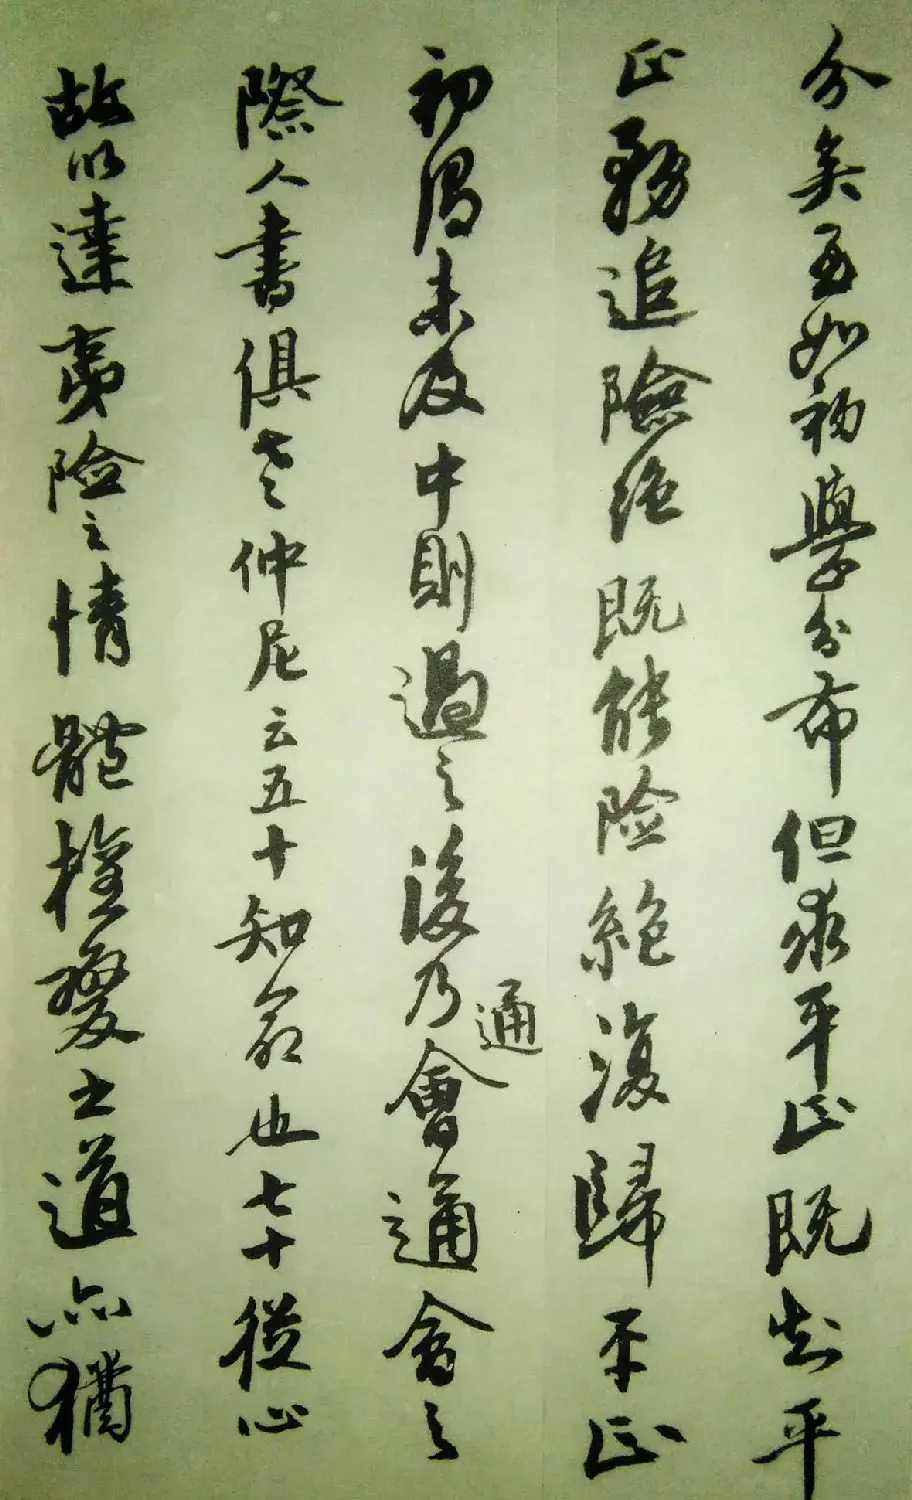 分矣至如初學分布但求平正既知平
正務追險絕既能險絕復歸平正
初謂未及中則過之後乃會通會之
通
際人書俱老仲尼云五十知命也七十從心
故以達夷險之情體權變之道亦猶